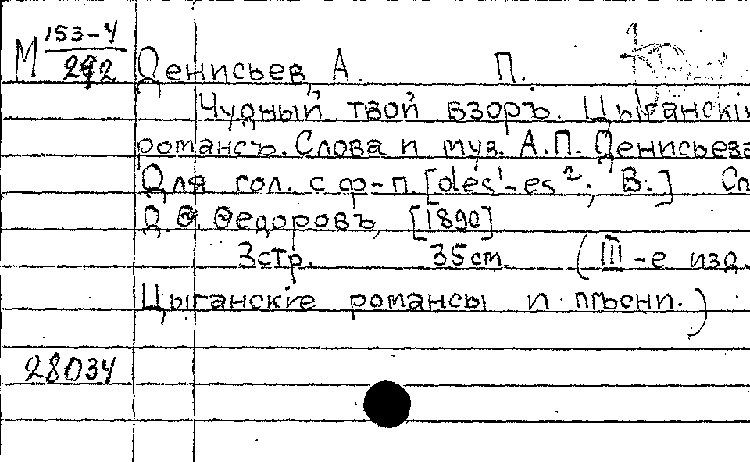 М 153-4/292 Денисьев, А. П.
Чудный твой взоръ. Цыганскі
романсъ. Слова и муз. А.П. Денисьева
Для гол. с ф-п. [des¹-es²; B:] Сп
Д. Ѳ. Ѳедоровъ, [1890]
3стр. 35cm. (III-е изд.
Цыганскіе романсы и пѣсни.)
28034